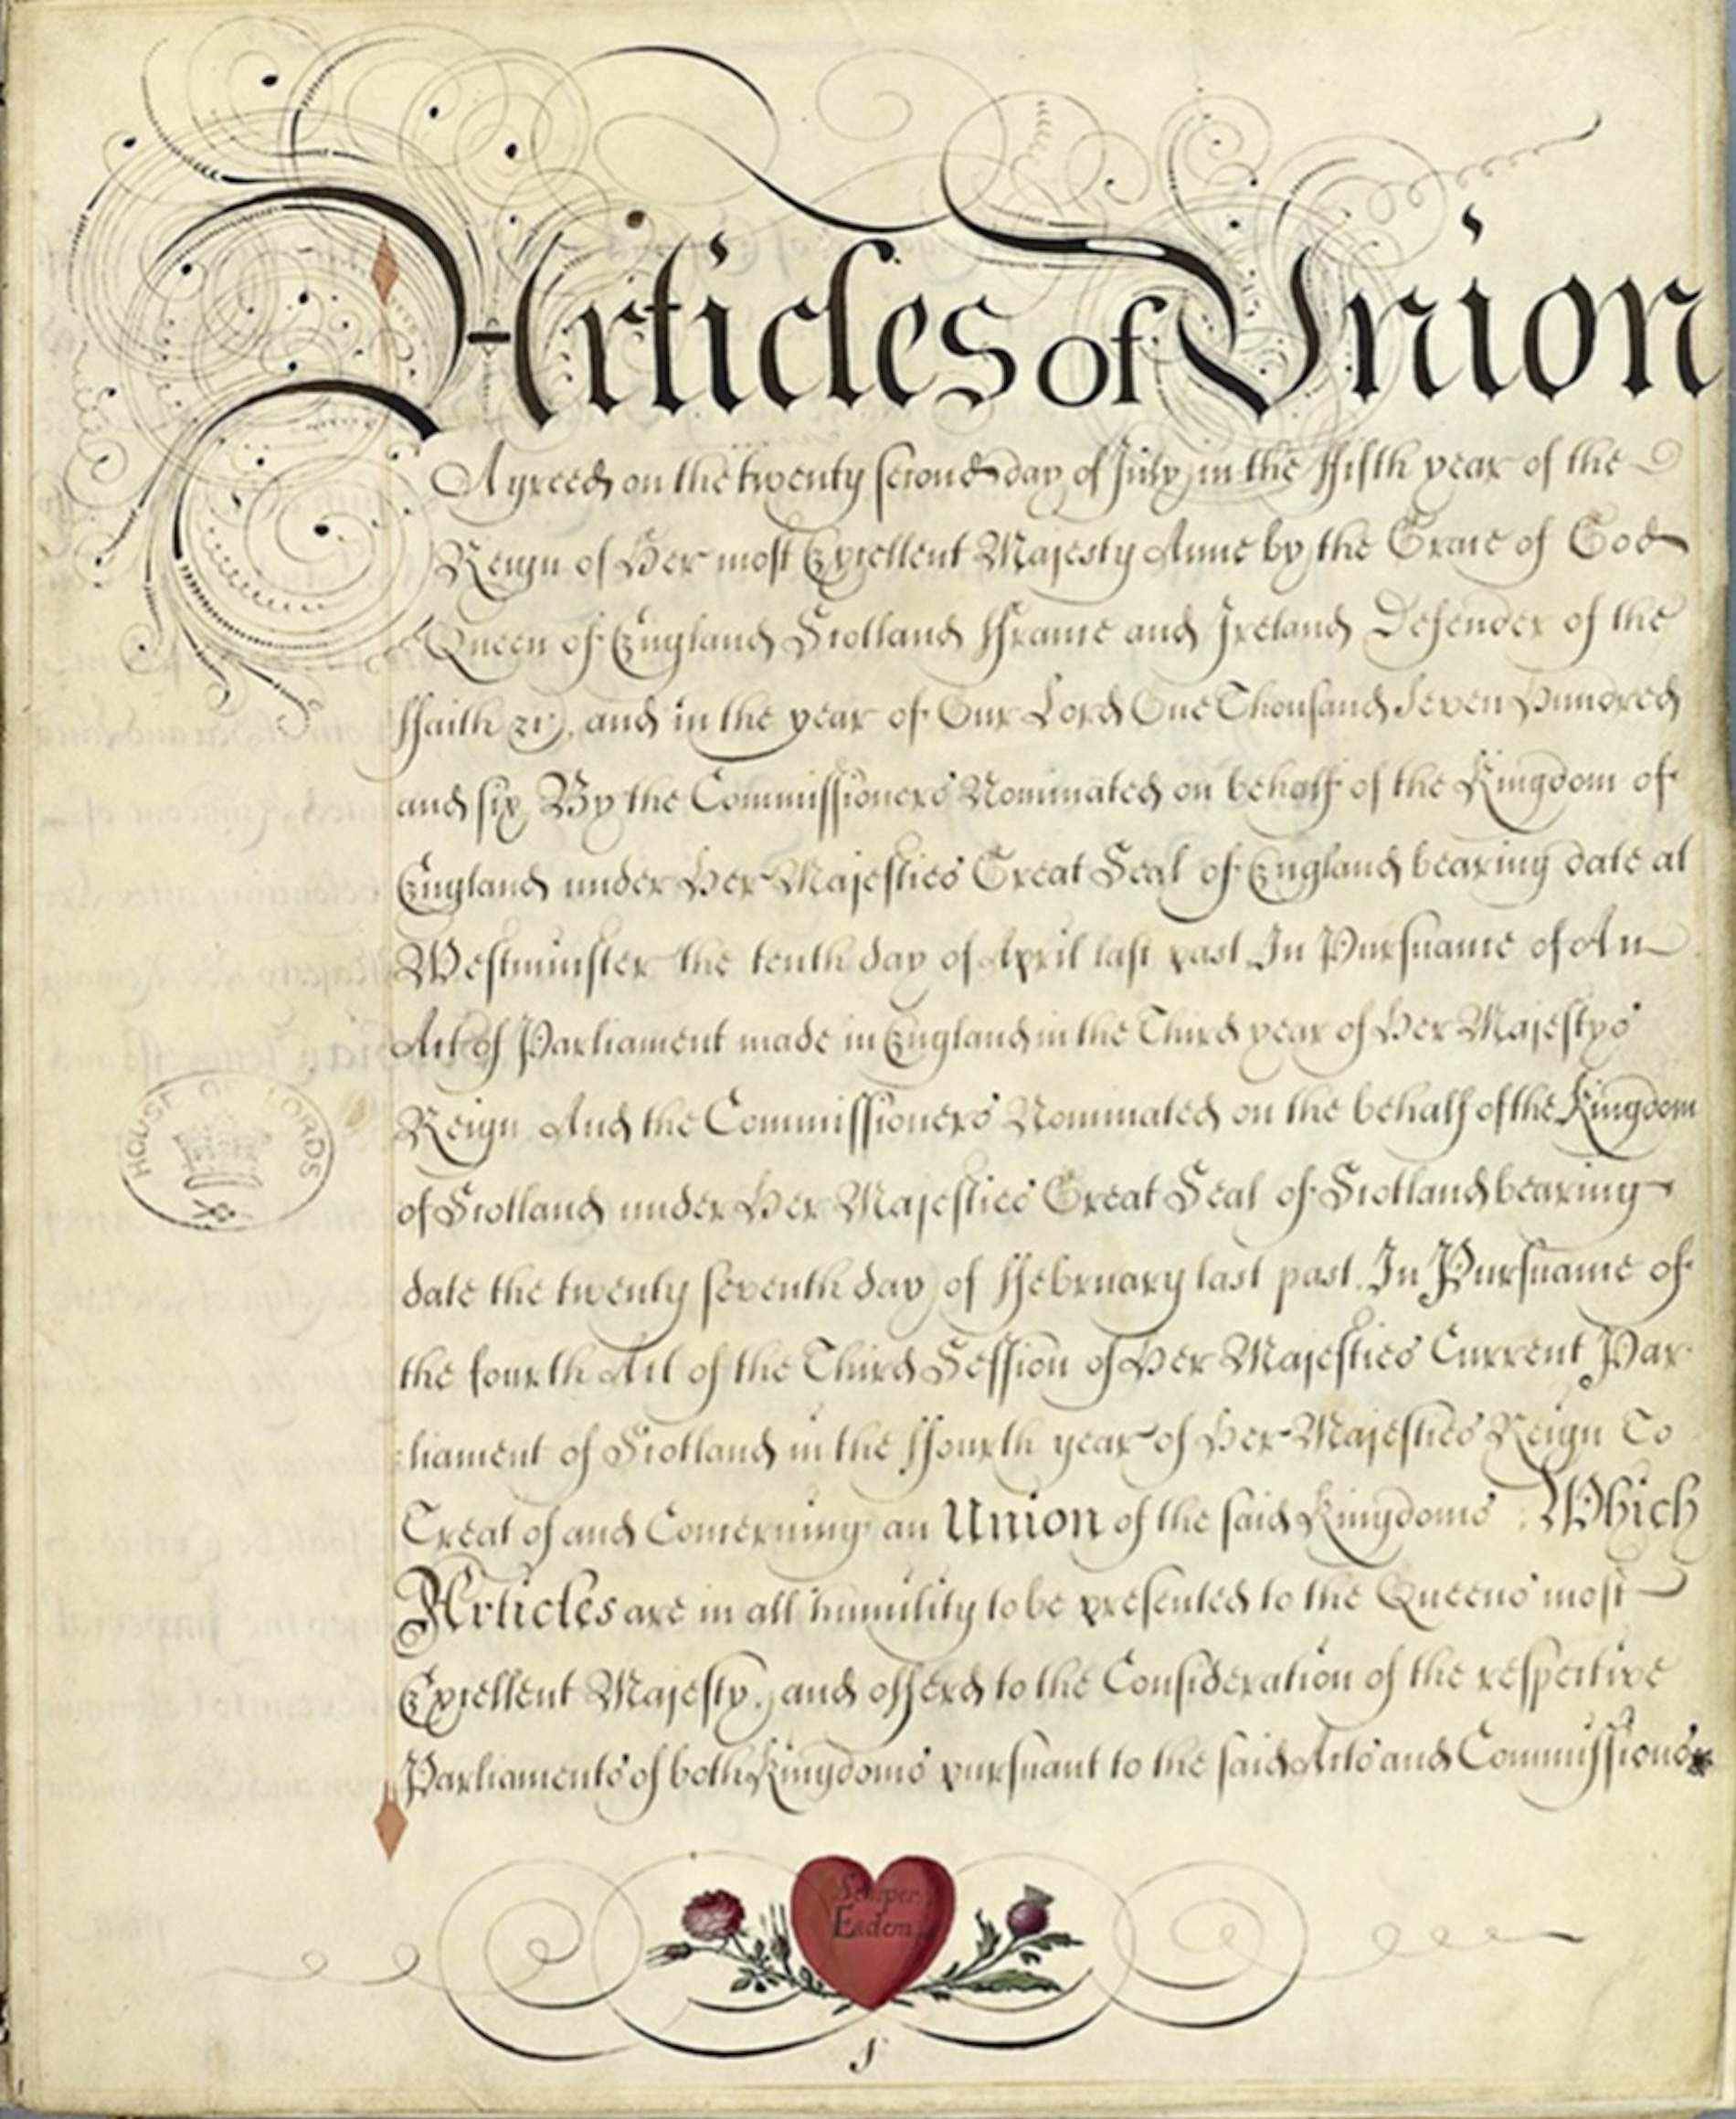 Articles of Union
Agreed on the twenty second day of July in the ffifth year of the
Reign of Her most Excellent Majesty Anne by the Grace of God
Queen of England Scotland ffrance and Ireland Defender of the
ffaith &c, and in the year of Our Lord One Thousand Seven Hundred
and six By the Commissioners Nominated on behalf of the Kingdom of
England under Her Majesties Great Seal of England bearing date at
Westminster the tenth day of April last past In Pursuance of An
Act of Parliament made in England in the Third year of Her Majestys
Reign And the Commissioners Nominated on the behalf of the Kingdom
of Scotland under Her Majesties Great Seal of Scotland bearing
date the twenty seventh day of ffebruary last past. In Pursuance of
the fourth Act of the Third Session of Her Majesties Current Par
:liament of Scotland in the ffourth year of Her Majesties Reign To
Treat of and Concerning an Union of the said Kingdoms : Which
Articles are in all humility to be presented to the Queens most
Excellent Majesty, and offerd to the Consideration of the respective
Parliaments of both Kingdoms pursuant to the said Acts and Commissions
HOUSE OF LORDS
Semper
Eadem